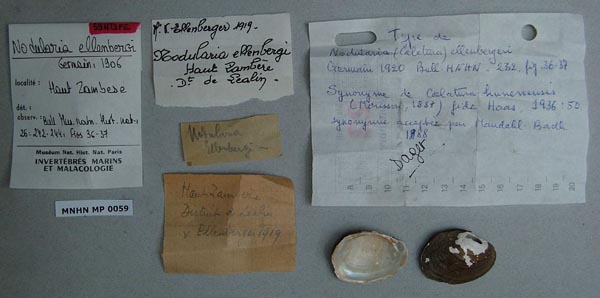 SYNTYPE
Nodularia ellenbergi
Germain, 1906
localité :
Haut Zambèse
dét. :
observ. : Bull Mus. natn. Hist. nat.,
26-242-244. Figs 36-37
Muséum Nat. Hist. Nat. Paris
INVERTÉBRÉS MARINS
ET MALACOLOGIE
MNHN MP 0059
V. Ellenberger 1919.
Nodularia ellenbergi
Haut Zambèze
Dt de Lealin.
Nodularia
Ellenbergi
Haut Zambèze
District de Lealin
V Ellenberger 1919
Type de
Nodularia (Caelatura) ellenbergeri
Germain 1920 Bull MNHN. 232. fig 36-37
Synonyme de Caelatura kunenensis
(Mousson, 1887) fide Haas 1936:50
synonymie acceptée par Mandahl-Barth
1988
Daget
8 9 10 11 12 13 14 15 16 17 18 19 20